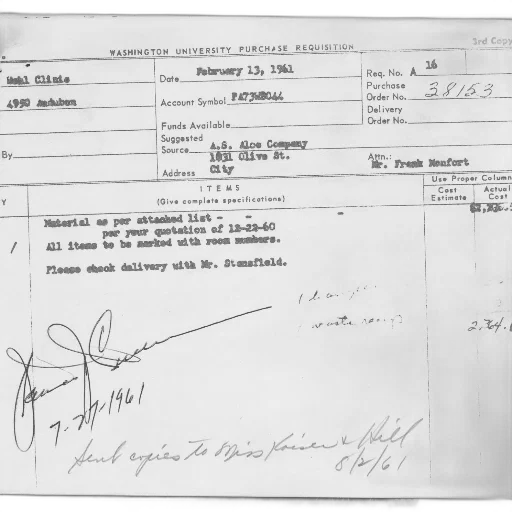 3rd Copy
WASHINGTON UNIVERSITY PURCHASE REQUISITION
Clinic
Date February 13, 1961
Req. No. A 16
4950 Audubon
Account Symbol
Purchase
Order No. 38153
Delivery
Order No.
Funds Available
Suggested
Source A.S. Aloe Company
1831 Olive St.
By
Address City
Attn.:
Mr. Frank Monfort
ITEMS
(Give complete specifications)
Use Proper Column
Cost
Estimate
Actual
Cost
Y
Material as per attached list - -
per your quotation of 12-22-60
1 All items to be marked with room numbers.
Please check delivery with Mr. Stansfield.
1
1 waste
2,764.
James J.
7-27-1961
Sent copies to Miss Kaiser & Hill
8/2/61